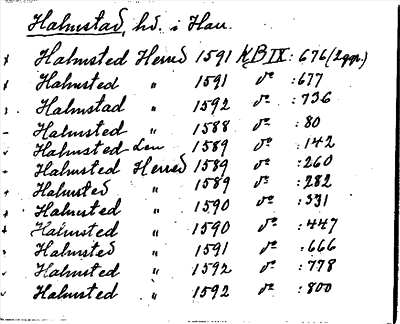 Halmstad, hd. i Hall.
x Halmsted Herred 1591 KB IX : 676 (2 ggr.)
x Halmsted " 1591 do : 677
Halmstad " 1592 do : 736
– Halmsted " 1588 do : 80
v Halmsted Len 1589 do : 142
+ Halmsted Herred 1589 do : 260
+ Halmsted " 1589 do : 282
+ Halmsted " 1590 do : 331
+ Halmsted " 1590 do : 447
Halmsted " 1591 do : 666
v Halmsted " 1592 do : 778
v Halmsted " 1592 do : 800